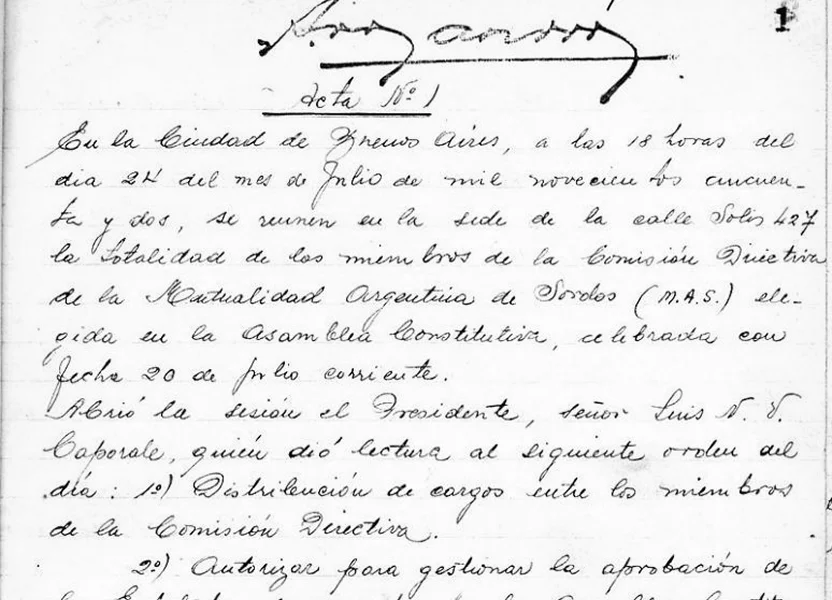 1
Acta Nº 1
En la Ciudad de Buenos Aires, a las 18 horas del
dia 24 del mes de Julio de mil novecientos cincuen-
ta y dos, se reunen en la sede de la calle Solis 427
la totalidad de los miembros de la Comisión Directiva
de la Mutualidad Argentina de Sordos (M.A.S.) ele-
gida en la Asamblea Constitutiva, celebrada con
fecha 20 de Julio corriente.
Abrió la sesión el Presidente, señor Luis N. V.
Caporale, quién dió lectura al siguiente orden del
día: 1º) Distribución de cargos entre los miembros
de la Comisión Directiva.
2º) Autorizar para gestionar la aprobación de